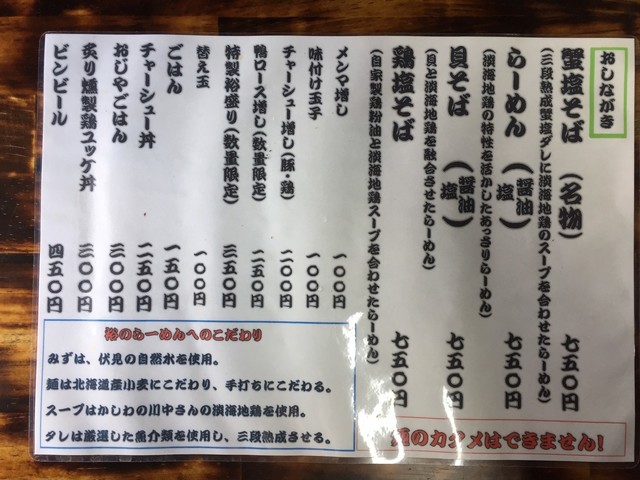 おしながき
蟹塩そば (名物) 七五〇円
(三段熟成蟹塩ダレに淡海地鶏のスープを合わせたらーめん)
らーめん (醤油 塩) 七五〇円
(淡海地鶏の特性を活かしたあっさりらーめん)
貝そば (醤油 塩) 七五〇円
(貝と淡海地鶏を融合させたらーめん)
鶏塩そば 七五〇円
(自家製鶏粉油と淡海地鶏スープを合わせたらーめん)
メンマ増し 一〇〇円
味付け玉子 一〇〇円
チャーシュー増し(豚・鶏) 二〇〇円
鴨ロース増し(数量限定) 二五〇円
特製裕盛り(数量限定) 三五〇円
替え玉 一〇〇円
ごはん 一五〇円
チャーシュー丼 二五〇円
おじやごはん 二〇〇円
炙り燻製鶏ユッケ丼 三〇〇円
ビンビール 四五〇円
裕のらーめんへのこだわり
みずは、伏見の自然水を使用。
麺は北海道産小麦にこだわり、手打ちにこだわる。
スープはかしわの川中さんの淡海地鶏を使用。
タレは厳選した魚介類を使用し、三段熟成させる。
麺のカタメはできません!